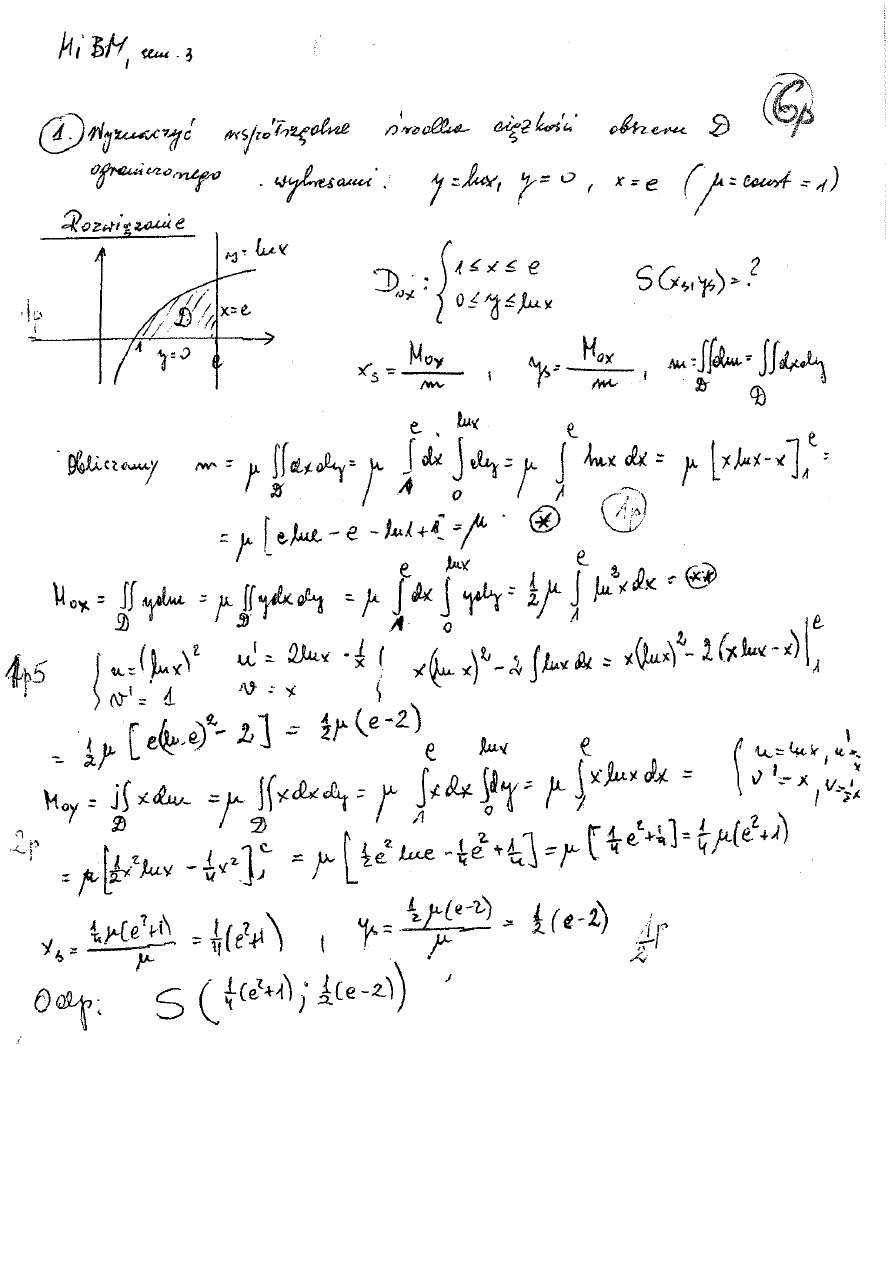 MiBM, sem. 3
6p
1. Wyznaczyć współrzędne środka ciężkości obszaru D
ograniczonego wykresami: y=lnx, y=0, x=e (μ=const=1)
Rozwiązanie
y=lnx
D
x=e
1
y=0
e
1p
D_ox: { 1≤x≤e
0≤y≤lnx
S(x_s, y_s)=?
x_s = M_ox/m , y_s = M_ox/m , m=∬_D dm=∬_D dxdy
Obliczamy m = μ ∬_D dxdy = μ ∫_1^e dx ∫_0^lnx dy = μ ∫_1^e lnx dx = μ [x lnx - x]_1^e =
= μ [e lne - e - ln1 + 1] = μ (*) 1p
M_ox = ∬_D ydm = μ ∬_D ydxdy = μ ∫_1^e dx ∫_0^lnx ydy = 1/2 μ ∫_1^e ln²x dx = (**)
1p5 { u=(lnx)² u' = 2lnx · 1/x
v' = 1 v = x } x(lnx)² - 2∫lnxdx = x(lnx)² - 2(xlnx-x)|_1^e
= 1/2 μ [e(ln e)² - 2] = 1/2 μ(e-2)
M_oy = ∬_D xdm = μ ∬_D xdxdy = μ ∫_1^e xdx ∫_0^lnx dy = μ ∫_1^e x lnx dx = { u=lnx, u'=1/x
v'=x, v=1/2x
2p = μ [1/2x² lnx - 1/4x²]_1^e = μ [1/2e² lne - 1/4e² + 1/4] = μ [1/4e² + 1/4] = 1/4 μ(e²+1)
x_s = 1/4μ(e²+1)/μ = 1/4(e²+1) , y_s = 1/2μ(e-2)/μ = 1/2(e-2) 1/2p
Odp: S(1/4(e²+1); 1/2(e-2))